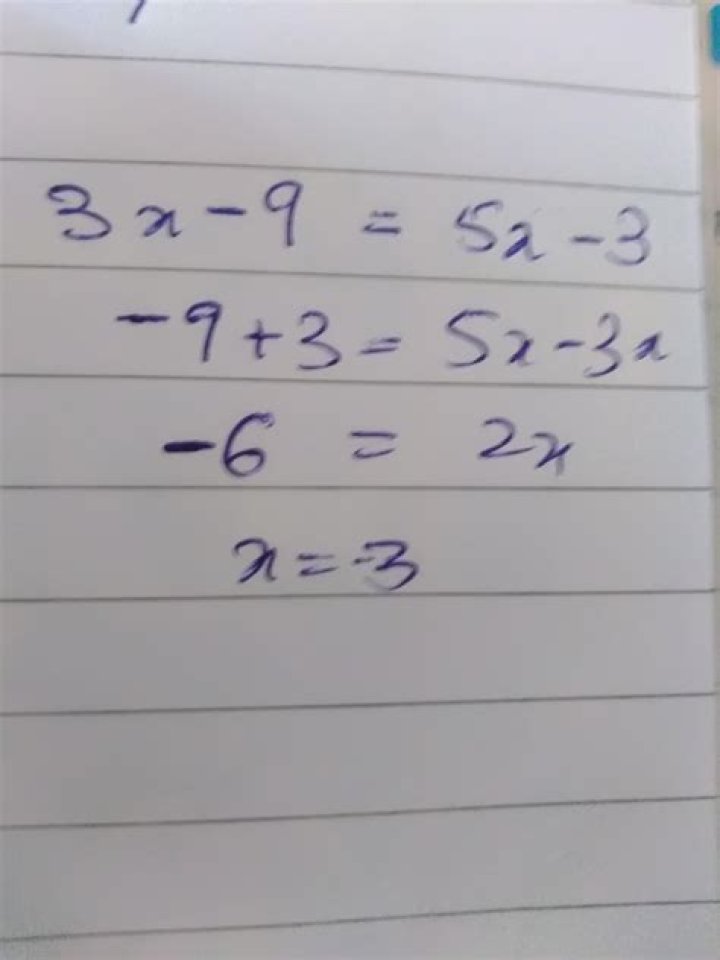 3x - 9 = 5x - 3
-9 + 3 = 5x - 3x
-6 = 2x
x = -3